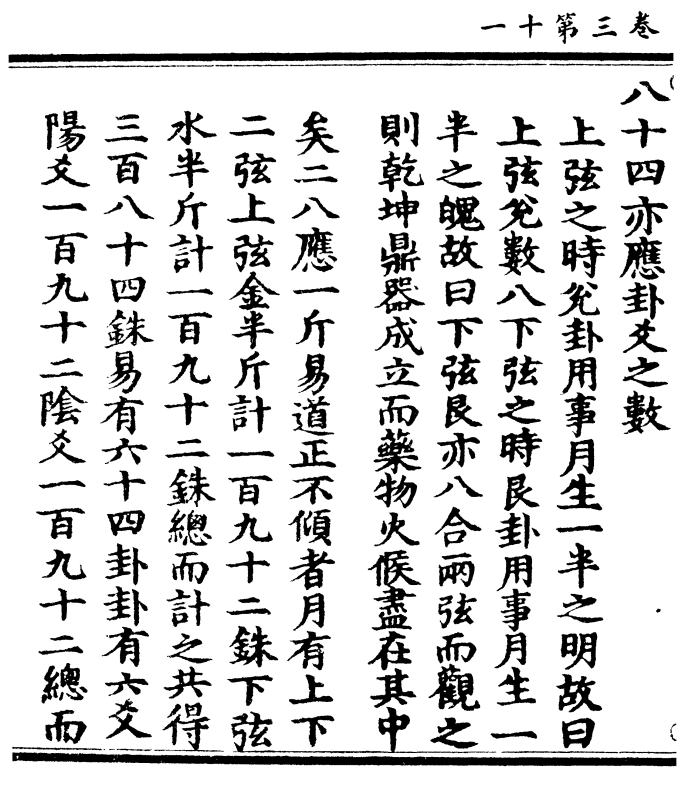 卷三第十一
八十四亦應卦爻之數
上弦之時兌卦用事月生一半之明故曰
上弦兌數八下弦之時艮卦用事月生一
半之魄故曰下弦艮亦八合兩弦而觀之
則乾坤鼎器成立而藥物火候盡在其中
矣二八應一斤易道正不傾者月有上下
二弦上弦金半斤計一百九十二銖下弦
水半斤計一百九十二銖總而計之共得
三百八十四銖易有六十四卦卦有六爻
陽爻一百九十二陰爻一百九十二總而